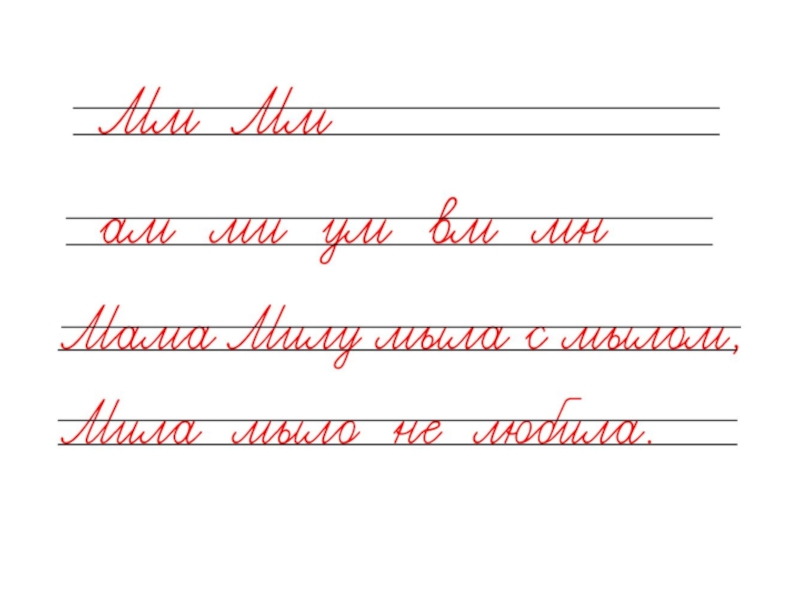 Мм Мм
ам ми ум вм мн
Мама Милу мыла с мылом,
Мила мыло не любила.